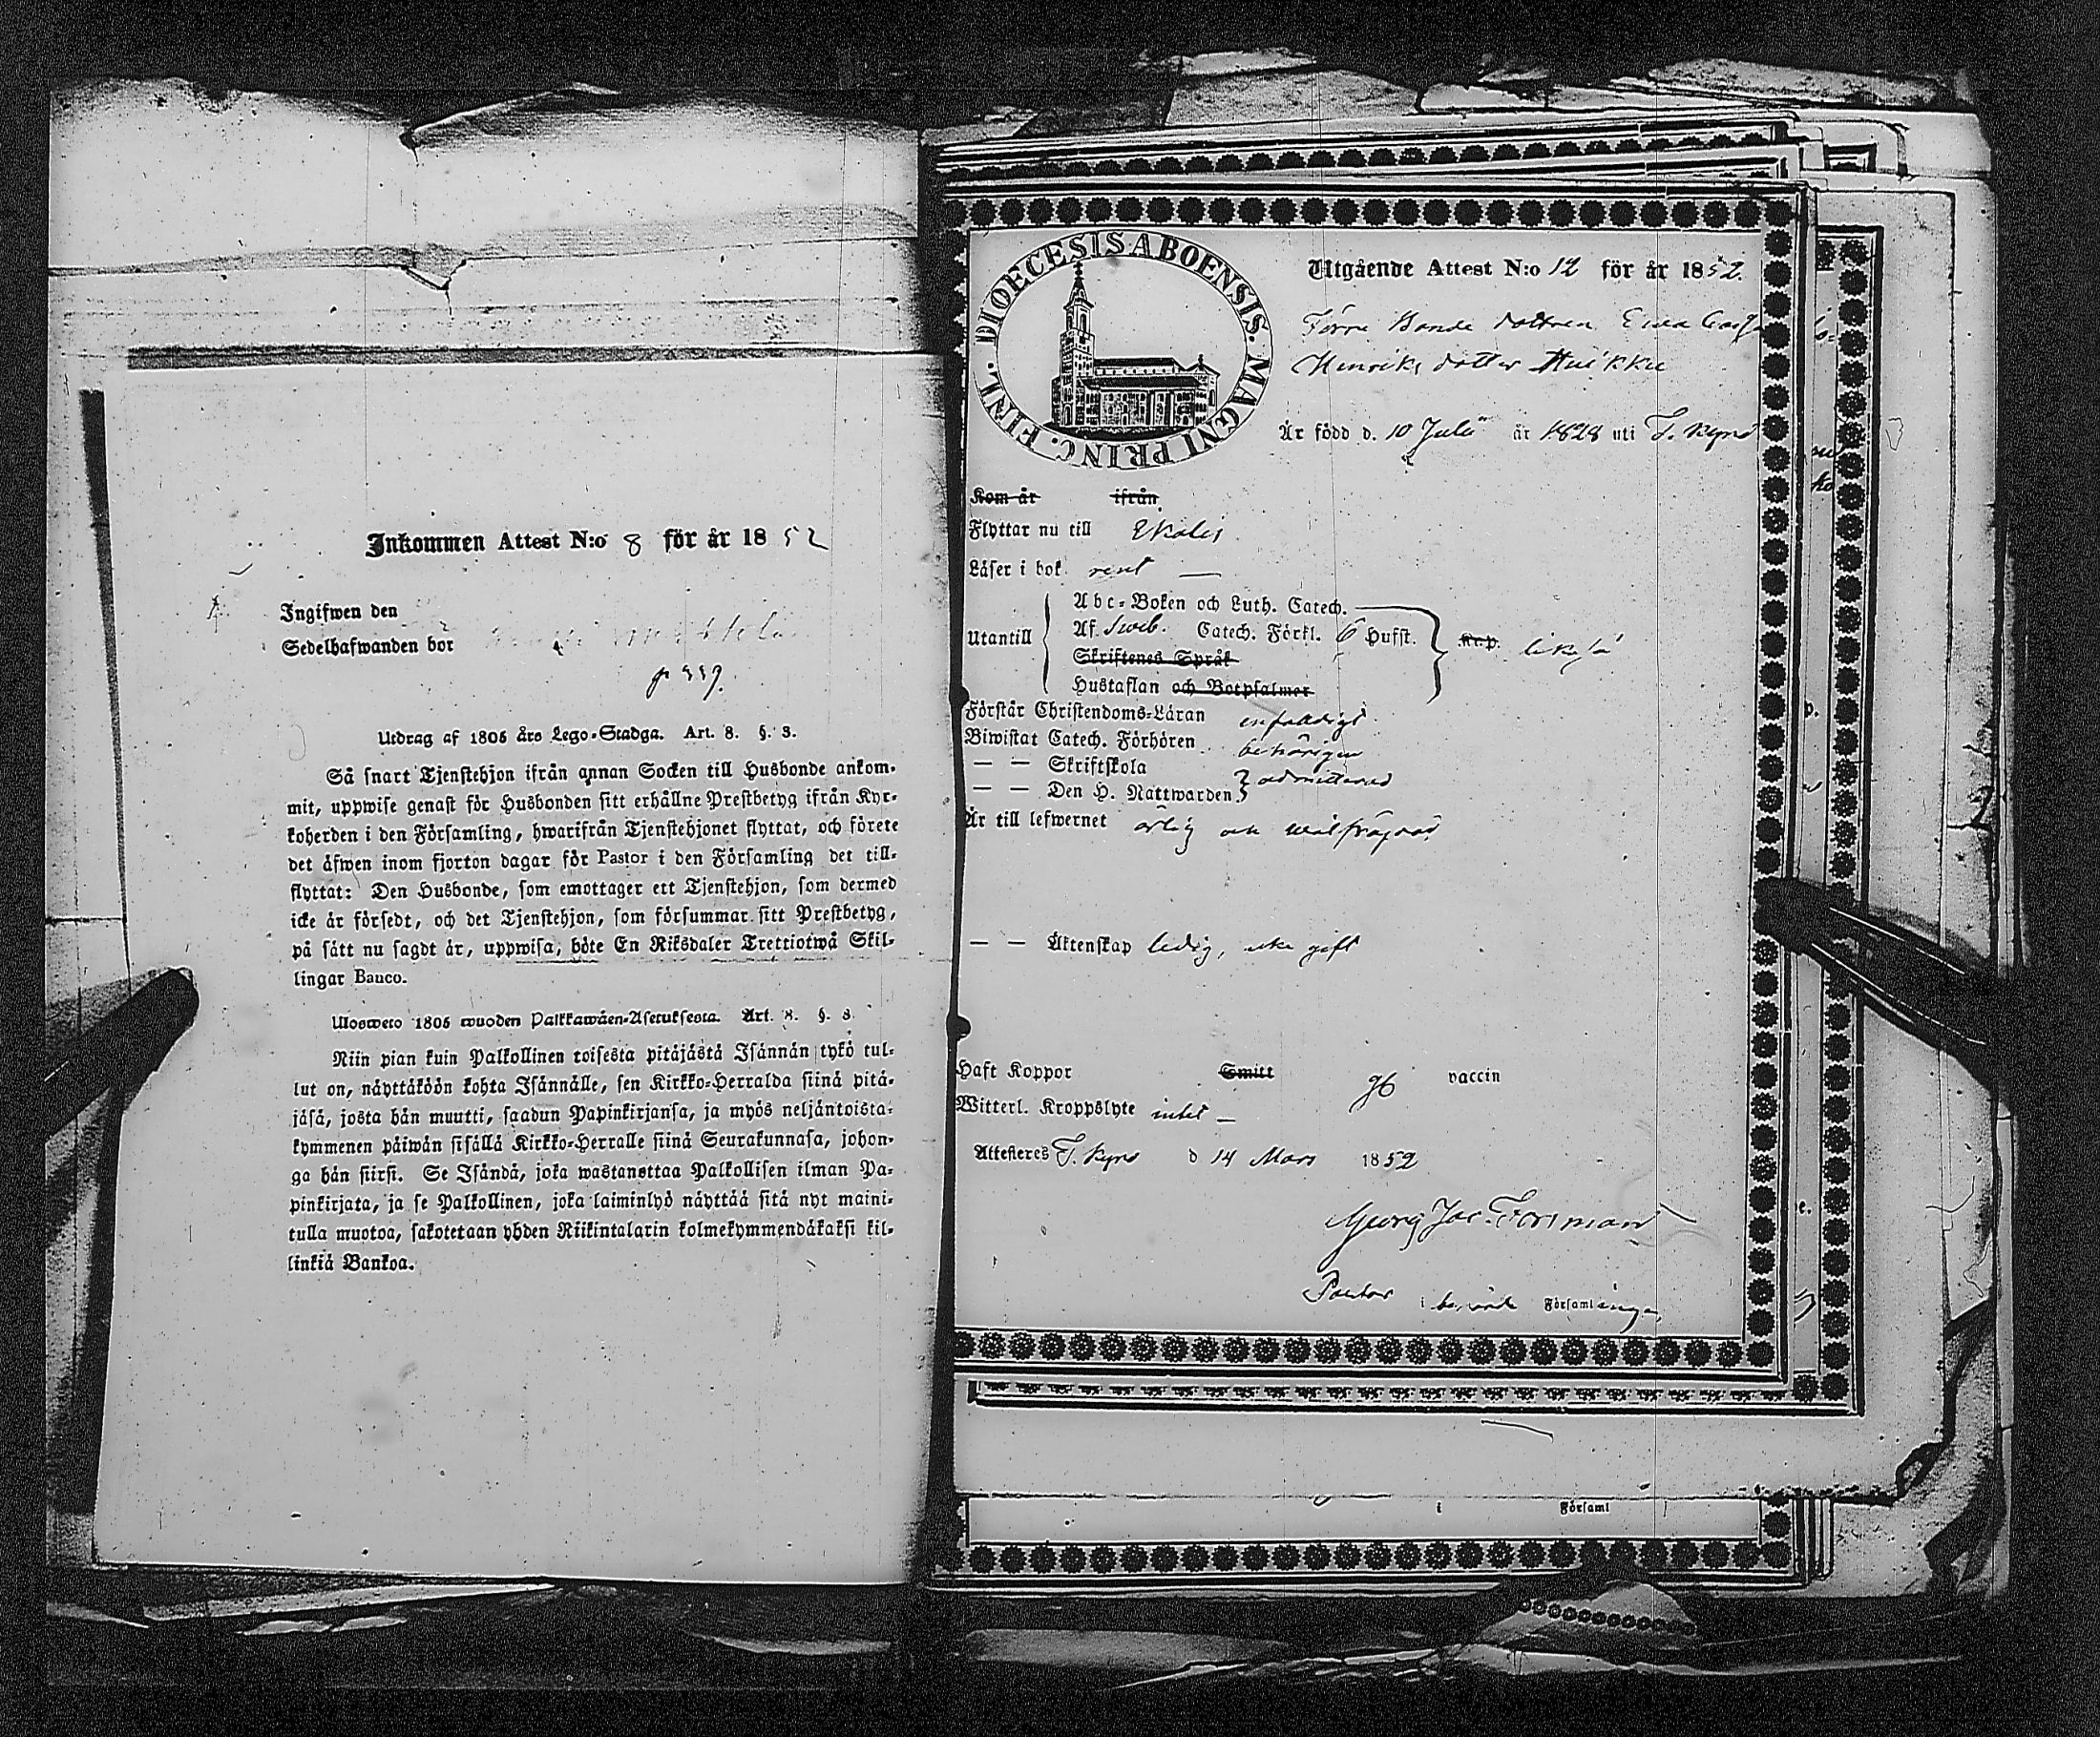 Inkommen Attest N:o 8 för år 1852
Ingifwen den
Sedelhafwanden bor
p 339.
Utdrag af 1805 års Lego-Stadga. Art. 8. §. 3.
Så snart Tjenstehjon ifrån annan Socken till Husbonde ankom-
mit, uppwise genast för Husbonden sitt erhållne Prestbetyg ifrån Kyr-
koherden i den Församling, hwarifrån Tjenstehjonet flyttat, och förete
det äfwen inom fjorton dagar för Pastor i den Församling det till-
flyttat: Den Husbonde, som emottager ett Tjenstehjon, som dermed
icke är försedt, och det Tjenstehjon, som försummar sitt Prestbetyg,
på sätt nu sagdt är, uppwisa, böte En Riksdaler Trettiotwå Skil-
lingar Banco.
Ulosweto 1805 wuoden Palkkawäen-Asetuksesta. Art. 8. §. 3.
Niin pian kuin Palkollinen toisesta pitäjästä Isännän tykö tul-
lut on, näyttäköön kohta Isännälle, sen Kirkko-Herralda siinä pitä-
jäsä, josta hän muutti, saadun Papinkirjansa, ja myös neljäntoista-
kymmenen päiwän sisällä Kirkko-Herralle siinä Seurakunnasa, johon-
ga hän siirsi. Se Isändä, joka wastanottaa Palkollisen ilman Pa-
pinkirjata, ja se Palkollinen, joka laiminlyö näyttää sitä nyt maini-
tulla muotoa, sakotetaan yhden Riikintalarin kolmekymmendäkaksi kil-
linkiä Bankoa.
DIOECESIS ABOENSIS. MAGNI PRINC. FINL.
Utgående Attest N:o 12 för år 1852.
Förre Bonde dottren Eva
Henriks dotter Huikku
Är född d. 10 Julii år 1828 uti T. Kyro
Kom år ifrån
Flyttar nu till Ikalis
Läser i bok rent —
Utantill
Abc-Boken och Luth. Catech.
Af Sweb. Catech. Förkl. 6 Hufst.
Skriftenes Språk
Hustaflan och Botpsalmer
Kr.p. likaså
Förstår Christendoms-Läran enfaldigt
Biwistat Catech. Förhören behörigen
— — Skriftskola
— — Den H. Nattwarden admitterad
Är till lefwernet ärlig och wälfrägdad
— — Äktenskap ledig, icke gift
Haft Koppor Smitt gb vaccin
Witterl. Kroppslyte intet —
Attesteres T. Kyro d 14 Mars 1852
Georg Jac. Forsman
Pastor i berörde Församlingar
i Församl